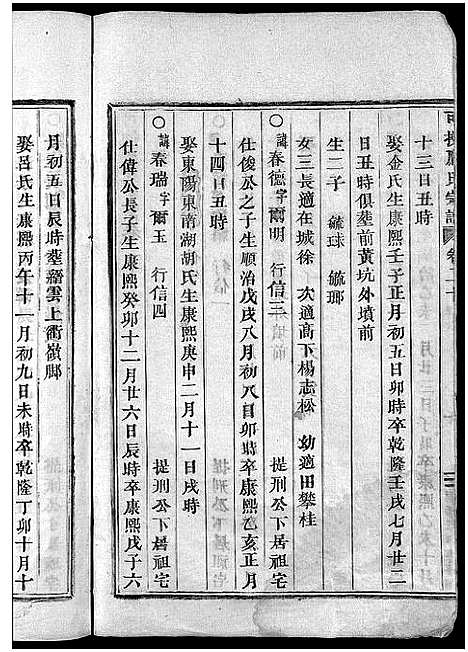 十三日丑時
娶金氏生康熙壬子正月初五日卯時卒乾隆壬戌七月廿二
日丑時俱塟前黃坑外墳前
生二子 毓球 毓瑯
女三長適在城徐 次適高下楊志松 幼適田攀桂
○諱春德字爾明 行信三 提刑公下居祖宅
仕俊公之子生順治戊戌八月初八日卯時卒康熙乙亥正月
十四日丑時
娶東陽東南湖胡氏生康熙庚申二月十一日戌時
○諱春瑞字爾玉 行信四 提刑公下居祖宅
仕偉公長子生康熙癸卯十二月廿六日辰時卒康熙戊子六
月初五日辰時塟縉雲上衢嶺脚
娶呂氏生康熙丙午十一月初九日未時卒乾隆丁卯十月十